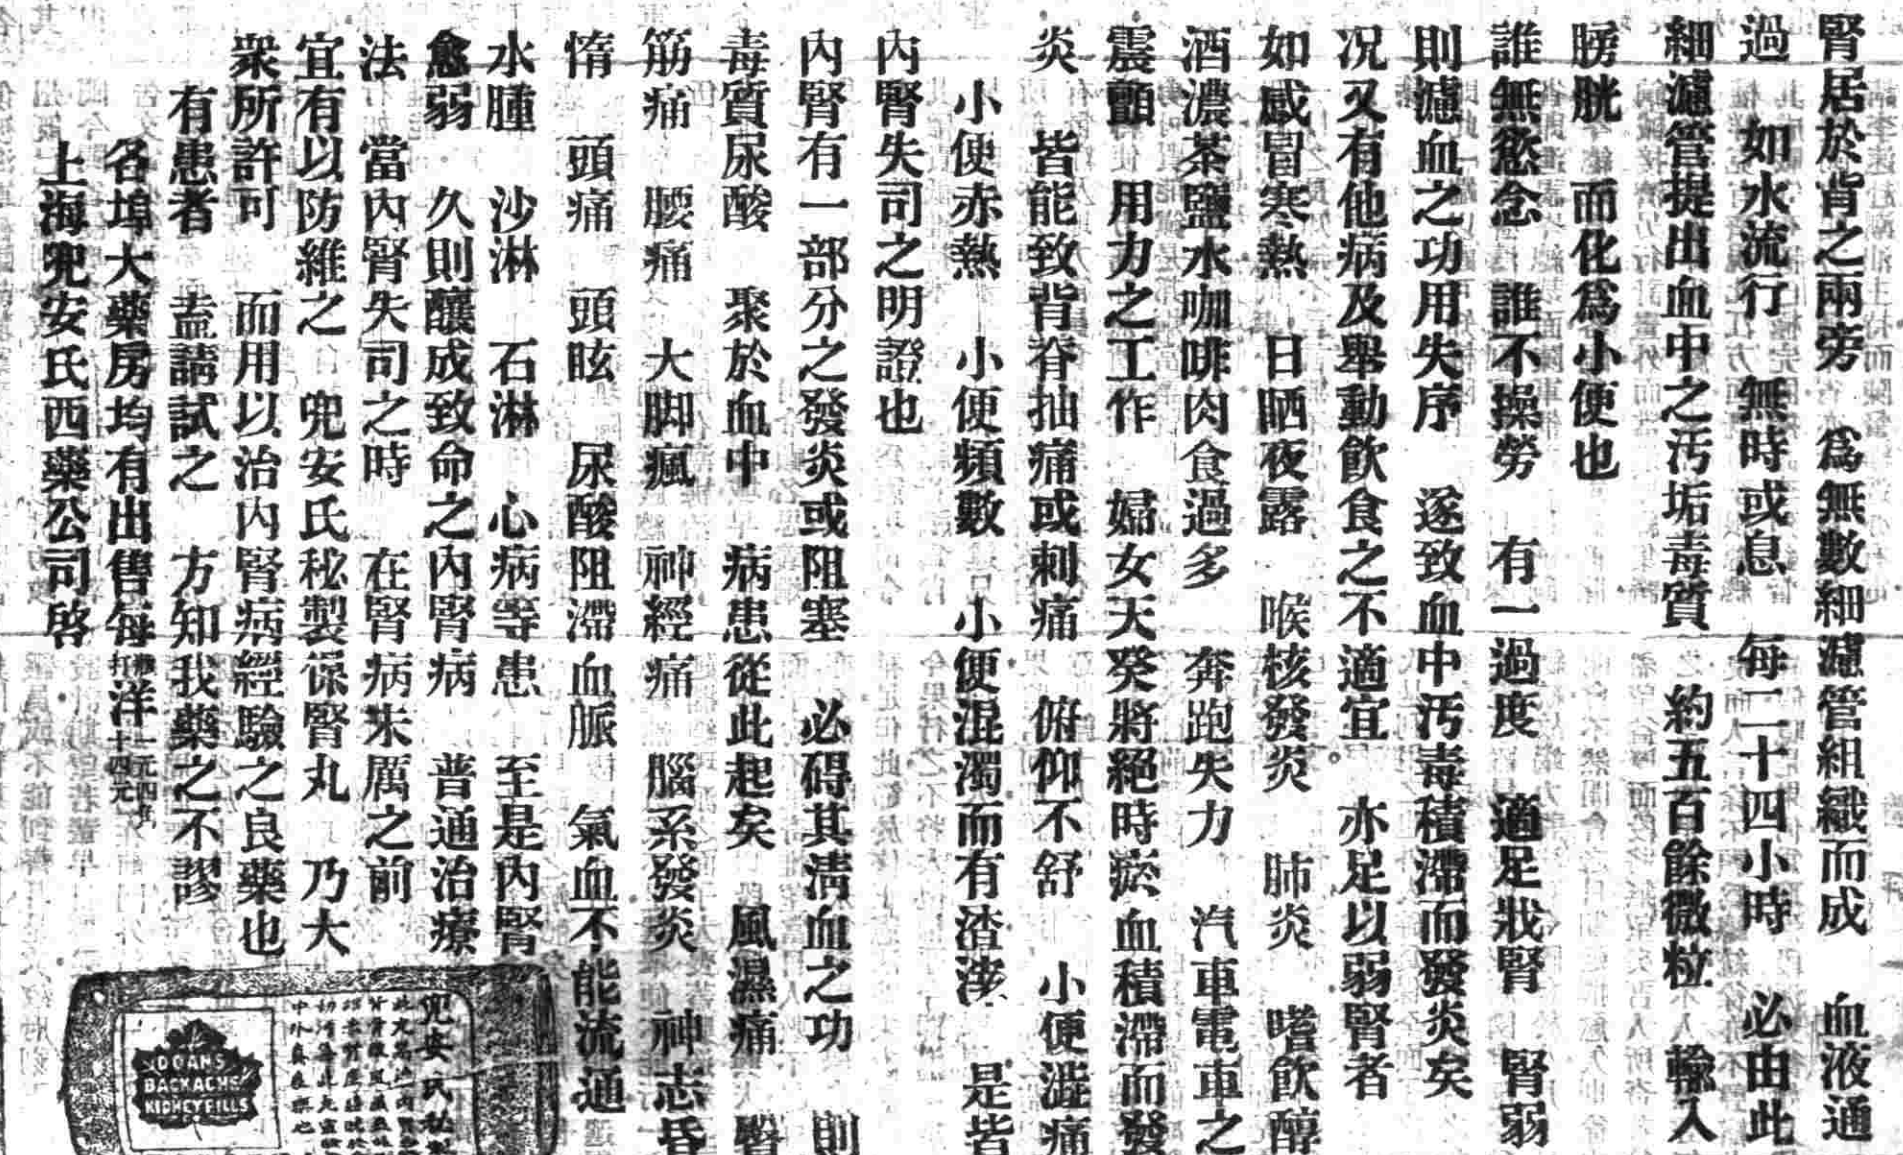 腎居於背之兩旁 爲無數細濾管組織而成 血液通
過 如水流行 無時或息 每二十四小時 必由此
細濾管提出血中之汚垢毒質 約五百餘微粒 輸入
膀胱 而化爲小便也
誰無慾念 誰不操勞 有一過度 適足戕腎 腎弱
則濾血之功用失序 遂致血中汚毒積滯而發炎矣
况又有他病及舉動飮食之不適宜 亦足以弱腎者
如感冒寒熱 日晒夜露 喉核發炎 肺炎 嗜飮醇
酒濃茶鹽水咖啡肉食過多 奔跑失力 汽車電車之
震顫 用力之工作 婦女天癸將絕時瘀血積滯而發
炎 皆能致背脊抽痛或刺痛 俯仰不舒 小便澁痛
小便赤熱 小便頻數 小便混濁而有渣滓 是皆
內腎失司之明證也
內腎有一部分之發炎或阻塞 必碍其淸血之功 則
毒質尿酸 聚於血中 病患從此起矣 風濕痛 臀
筋痛 腰痛 大脚瘋 神經痛 腦系發炎 神志昏
惰 頭痛 頭眩 尿酸阻滯血脈 氣血不能流通
水腫 沙淋 石淋 心病等患 至是內腎
愈弱 久則釀成致命之內腎病 普通治療
法 當內腎失司之時 在腎病未厲之前
宜有以防維之 兜安氏秘製保腎丸 乃大
衆所許可 而用以治內腎病經驗之良藥也
有患者 盍請試之 方知我藥之不謬
各埠大藥房均有出售每瓶洋一元四角打十四元
上海兜安氏西藥公司啓
兜安氏秘製
DOANS
BACKACHE
KIDNEY PILLS